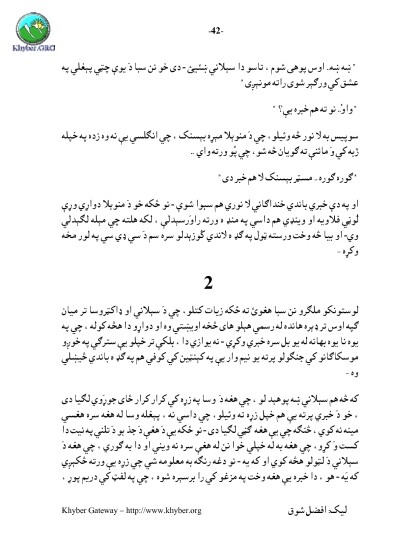 Khyber.ORG
-42-
" ښه ښه. اوس پوهى شوم ، تاسو دا سېلاني ښئيئ - دى خو تن سبا دَ يوې چټې پېغلې په
عشق کې ورګېر شوى راته مونېږى "
" واوْ.. نو ته هم خبره يې؟ "
سوېيس به لا نور څه وئيلو ، چې دَ منوېلا مېړه بېسنک ، چې انګلسي يې نه وه زده په خپله
ژبه کې وَ مائنې ته ګويان څه شو ، چې پُو ورته واي ..
" ګوره ګوره .. مسټر بېسنک لا هم خبر دى "
او په دې خبرې باندې خنداګانې لا نورې هم سېوا شوې - نو ځکه خو دَ منوېلا دواړې وړې
لوڼې فلاويه او وېنډي هم داسې په منډه ورته راوَرسېدلې ، لکه هلته چې مېله لګېدلې
وي - او بيا څه وخت ورسته ټول په ګډه لاندې کُوزېدلو سره سم دَ سي ډي سي په لور مخه
وکړه -
2
لوستونکو ملګرو تن سبا هغوئ ته ځکه زيات کتلو ، چې دَ سېلاني او ډاکټر وسا تر ميان
ګپه اوس تر ډېره هانده له رسمي هېلو هاى څخه اوښتې وه او دواړو دا هڅه کوله ، چې په
يوه نا يوه بهانه له يو بل سره خبرې وکړي - نه يوازې دا ، بلکې تر خپلو يې سترګې په خوږو
موسکاګانو کې جنګولو پرته يو نيم وار يې په کېنټين کې کوفي هم په ګډه باندې څښلې
وه -
که څه هم سېلاني ښه پوهېد لو ، چې هغه دَ وسا په زړه کې کرار کرار ځاى جوړوي لګيا دى
، خو دَ خبرې پرته يې هم خپل زړه ته وئيلو ، چې داسې نه ، پېغله وسا له هغه سره هغسې
مينه نه کوي ، څنګه چې يې هغه ګڼي لګيا دى - نو ځکه يې دَ هغې دَ جذبو دَ تلنې په نيت دا
کست وَ کړو ، چې هغه به له خپلې خوا تن له هغې سره نه ويني او دا به ګوري ، چې هغه دَ
سېلاني دَ لټولو هڅه کوي او که يه - نو دغه رنګه به معلومه شي چې زړه يې ورته څکېږي
که يَه - هو ، دا خبره يې هغه وخت په مزغو کې را برسېره شوه ، چې په لفټ کې دريم پوړ ،
ليک: افضل شوق
Khyber Gateway – http://www.khyber.org